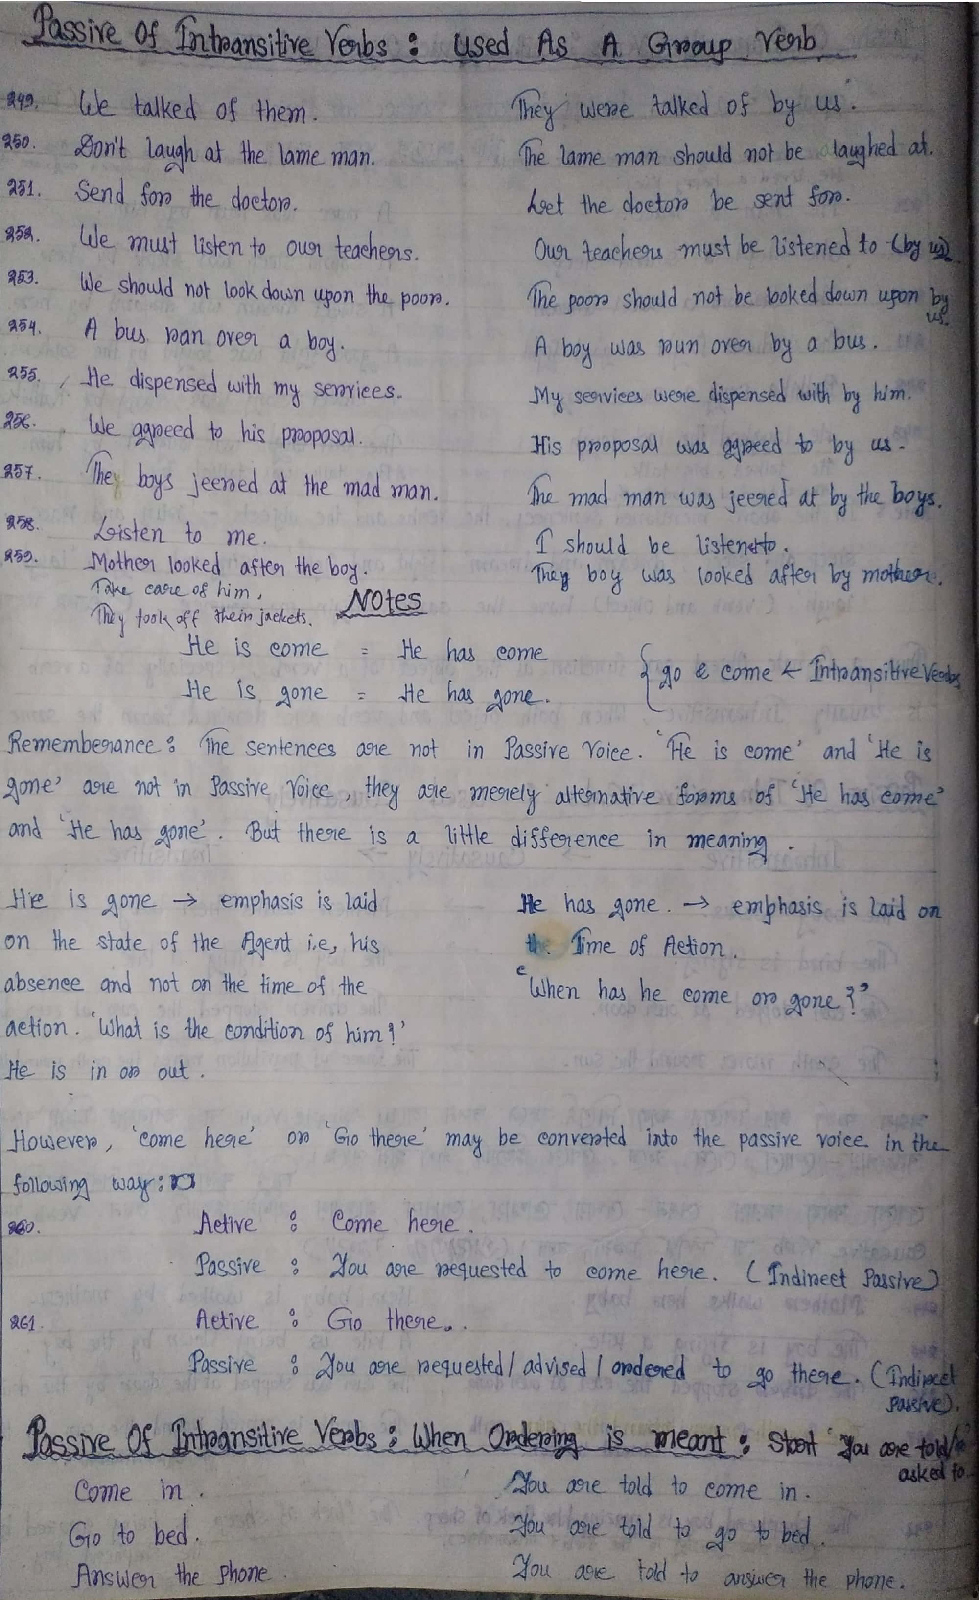 Passive Of Intransitive Verbs : Used As A Group Verb
249. We talked of them. They were talked of by us.
250. Don't laugh at the lame man. The lame man should not be laughed at.
251. Send for the doctor. Let the doctor be sent for.
252. We must listen to our teachers. Our teachers must be listened to (by us).
253. We should not look down upon the poor. The poor should not be looked down upon by
us.
254. A bus ran over a boy. A boy was run over by a bus.
255. He dispensed with my services. My services were dispensed with by him.
256. We agreed to his proposal. His proposal was agreed to by us.
257. They boys jeered at the mad man. The mad man was jeered at by the boys.
258. Listen to me. I should be listened to.
259. Mother looked after the boy. They boy was looked after by mother.
Take care of him,
They took off their jackets.
Notes
He is come = He has come
He is gone = He has gone.
{ go & come ← Intransitive Verbs
Rememberance : The sentences are not in Passive Voice. 'He is come' and 'He is
gone' are not in Passive Voice, they are merely alternative forms of 'He has come'
and 'He has gone'. But there is a little difference in meaning.
He is gone → emphasis is laid
on the state of the Agent i.e, his
absence and not on the time of the
action. 'What is the condition of him?'
He is in or out.
He has gone. → emphasis is laid on
the Time of Action.
'When has he come or gone?'
However, 'come here' or 'Go there' may be converted into the passive voice in the
following way :
260. Active : Come here.
Passive : You are requested to come here. (Indirect Passive)
261. Active : Go there.
Passive : You are requested/advised/ordered to go there. (Indirect
Passive).
Passive Of Intransitive Verbs : When Ordering is meant : Start 'You are told/
asked to
Come in. You are told to come in.
Go to bed. You are told to go to bed.
Answer the phone. You are told to answer the phone.